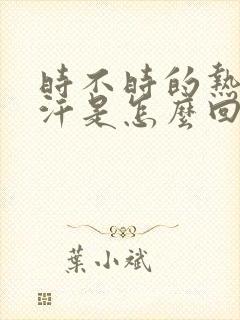 時不時的熱
汗是怎麼回
葉小斌